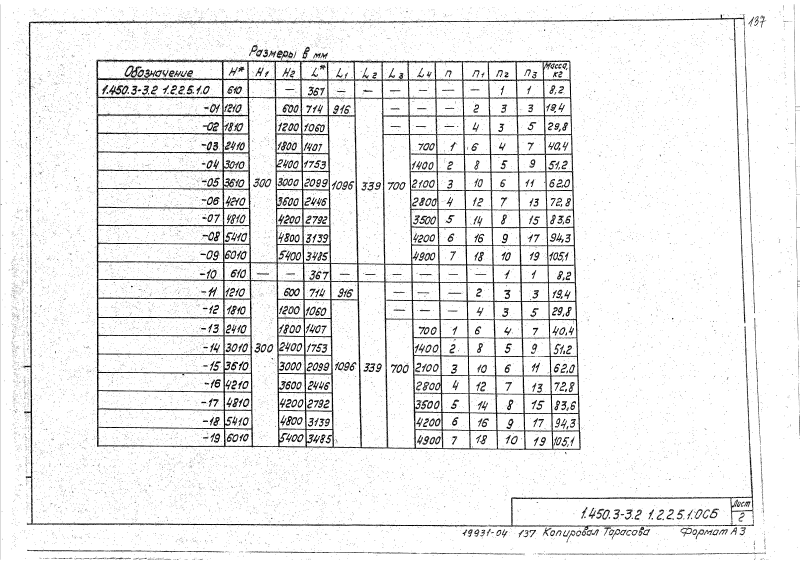 137
Размеры в мм
Обозначение H* H1 H2 L* L1 L2 L3 L4 n n1 n2 n3 Масса, кг
1.450.3-3.2 1.2.2.5.1.0 610 — 367 — — — — 1 1 8,2
-01 1210 600 714 916 — — — 2 3 3 19,4
-02 1810 1200 1060 — — — 4 3 5 29,8
-03 2410 1800 1407 700 1 6 4 7 40,4
-04 3010 2400 1753 1400 2 8 5 9 51,2
-05 3610 300 3000 2099 1096 339 700 2100 3 10 6 11 62,0
-06 4210 3600 2446 2800 4 12 7 13 72,8
-07 4810 4200 2792 3500 5 14 8 15 83,6
-08 5410 4800 3139 4200 6 16 9 17 94,3
-09 6010 5400 3485 4900 7 18 10 19 105,1
-10 610 — — 367 — — — — — — 1 1 8,2
-11 1210 600 714 916 — — — 2 3 3 19,4
-12 1810 1200 1060 — — — 4 3 5 29,8
-13 2410 1800 1407 700 1 6 4 7 40,4
-14 3010 300 2400 1753 1400 2 8 5 9 51,2
-15 3610 3000 2099 1096 339 700 2100 3 10 6 11 62,0
-16 4210 3600 2446 2800 4 12 7 13 72,8
-17 4810 4200 2792 3500 5 14 8 15 83,6
-18 5410 4800 3139 4200 6 16 9 17 94,3
-19 6010 5400 3485 4900 7 18 10 19 105,1
1.450.3-3.2 1.2.2.5.1.0СБ
Лист
2
19931-04 137 Копировал Тарасова Формат А3